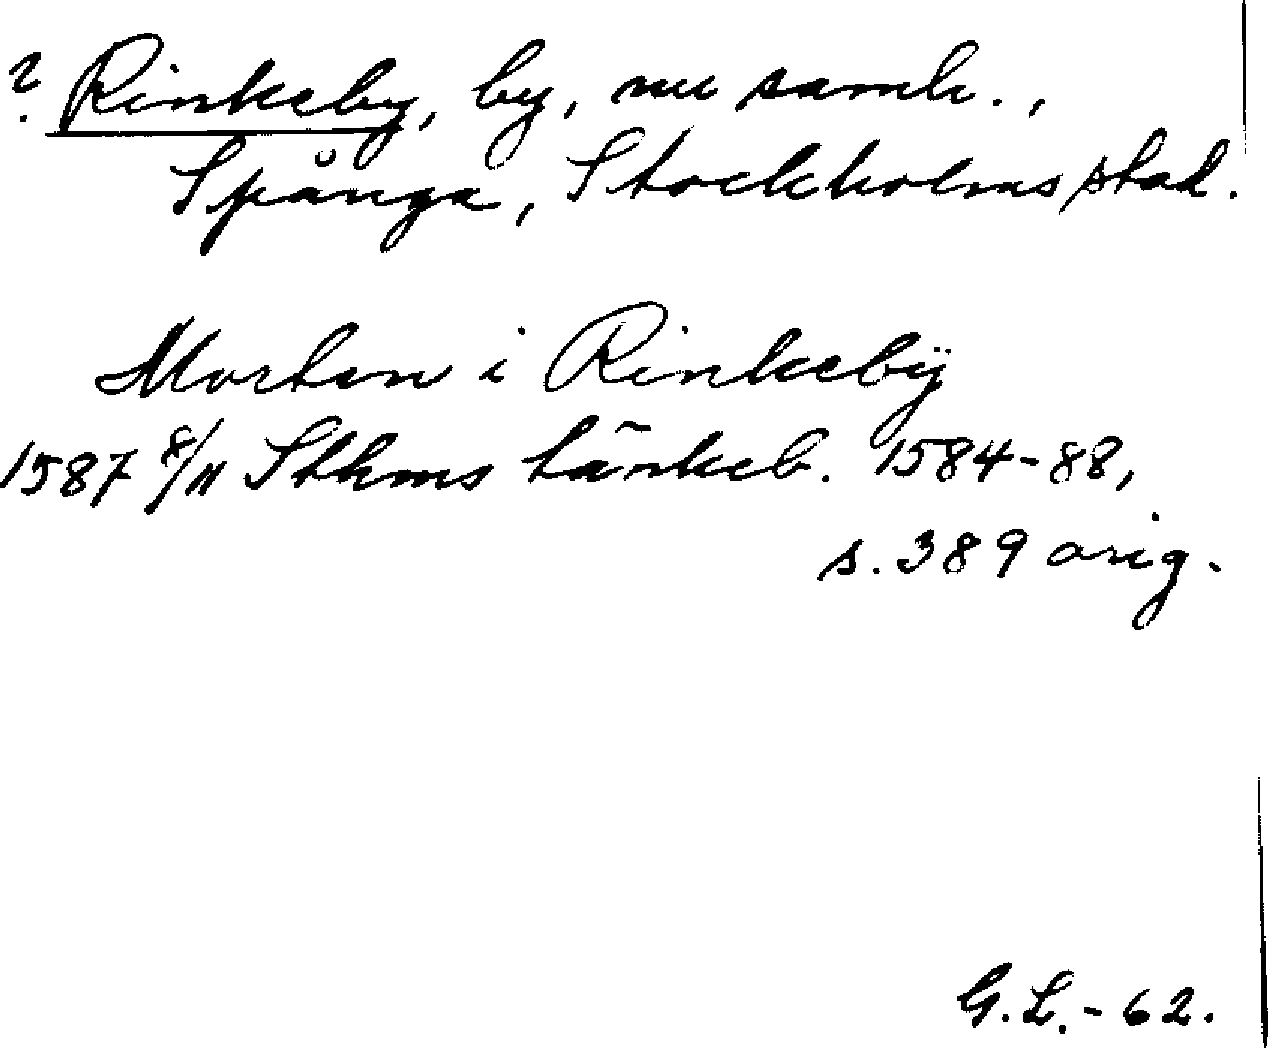 ? Rinkeby, by, nu samh.,
Spånga, Stockholms stad.
Morten i Rinkebÿ
1587 8/11 Sthms tänkeb. 1584-88,
s. 389 orig.
G.L.-62.